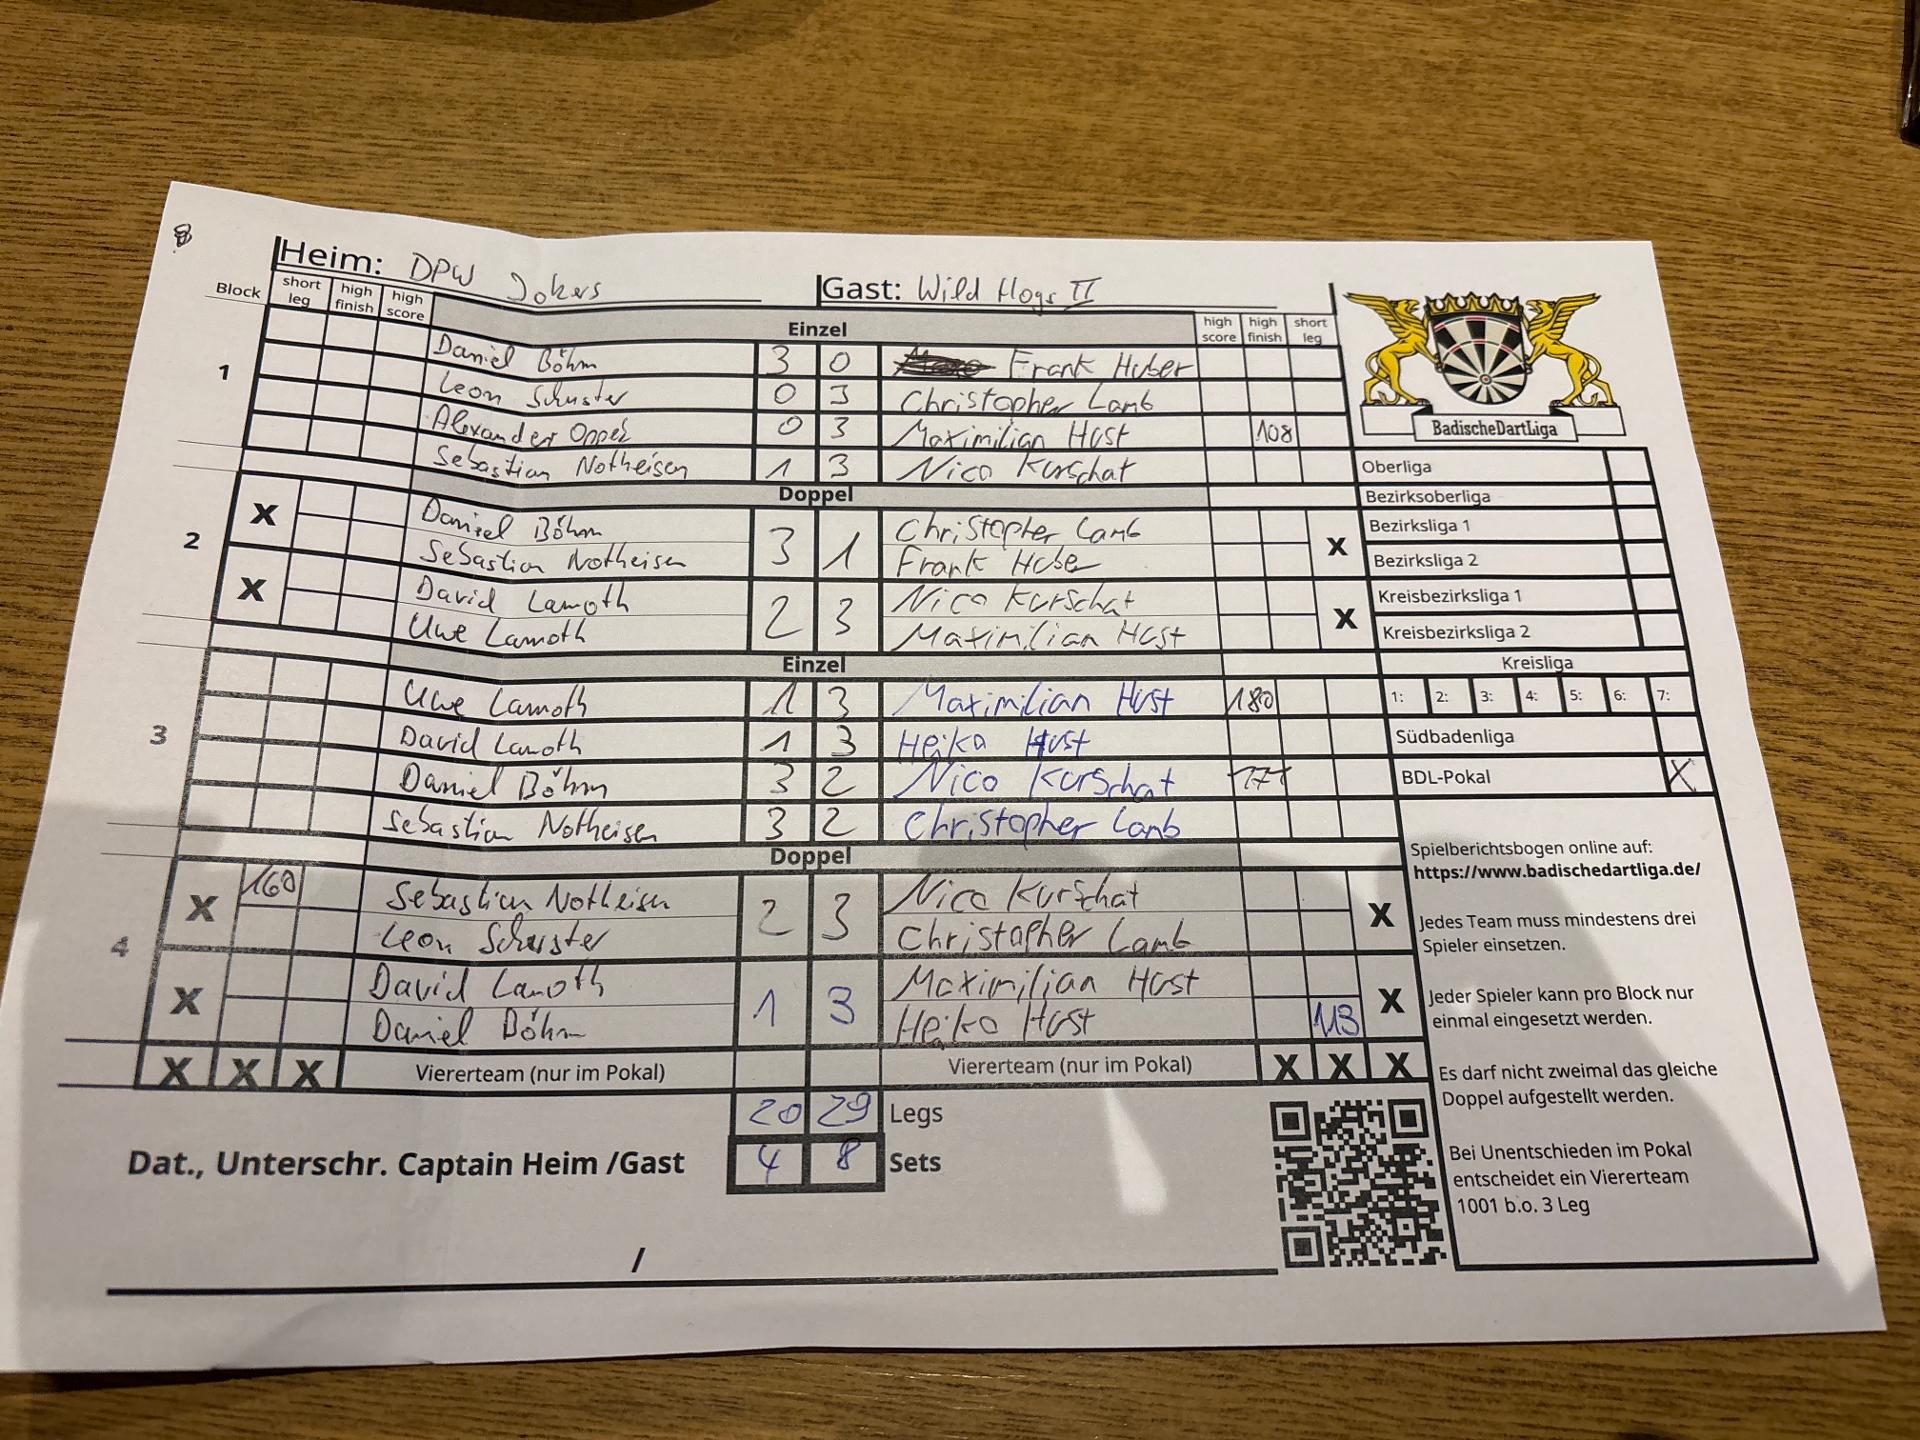 Heim: DPW Jokers Gast: Wild Hogs II
Block short leg high finish high score Einzel high score high finish short leg
1
Daniel Böhm 3 0 Frank Huber
Leon Schuster 0 3 Christopher Lamb
Alexander Oppel 0 3 Maximilian Hust 108
Sebastian Notheisen 1 3 Nico Kurschat
Doppel
2
X Daniel Böhm 3 1 Christopher Lamb X
Sebastian Notheisen Frank Huber
X David Lamoth 2 3 Nico Kurschat X
Uwe Lamoth Maximilian Hust
Einzel
3
Uwe Lamoth 1 3 Maximilian Hust 180
David Lamoth 1 3 Heiko Hust
Daniel Böhm 3 2 Nico Kurschat 171
Sebastian Notheisen 3 2 Christopher Lamb
Doppel
4
X 160 Sebastian Notheisen 2 3 Nico Kurschat X
Leon Schuster Christopher Lamb
X David Lamoth 1 3 Maximilian Hust X
Daniel Böhm Heiko Hust 113
X X X Viererteam (nur im Pokal) Viererteam (nur im Pokal) X X X
20 29 Legs
Dat., Unterschr. Captain Heim /Gast 4 8 Sets
/
BadischeDartLiga
Oberliga
Bezirksoberliga
Bezirksliga 1
Bezirksliga 2
Kreisbezirksliga 1
Kreisbezirksliga 2
Kreisliga
1: 2: 3: 4: 5: 6: 7:
Südbadenliga
BDL-Pokal X
Spielberichtsbogen online auf:
https://www.badischedartliga.de/
Jedes Team muss mindestens drei
Spieler einsetzen.
Jeder Spieler kann pro Block nur
einmal eingesetzt werden.
Es darf nicht zweimal das gleiche
Doppel aufgestellt werden.
Bei Unentschieden im Pokal
entscheidet ein Viererteam
1001 b.o. 3 Leg